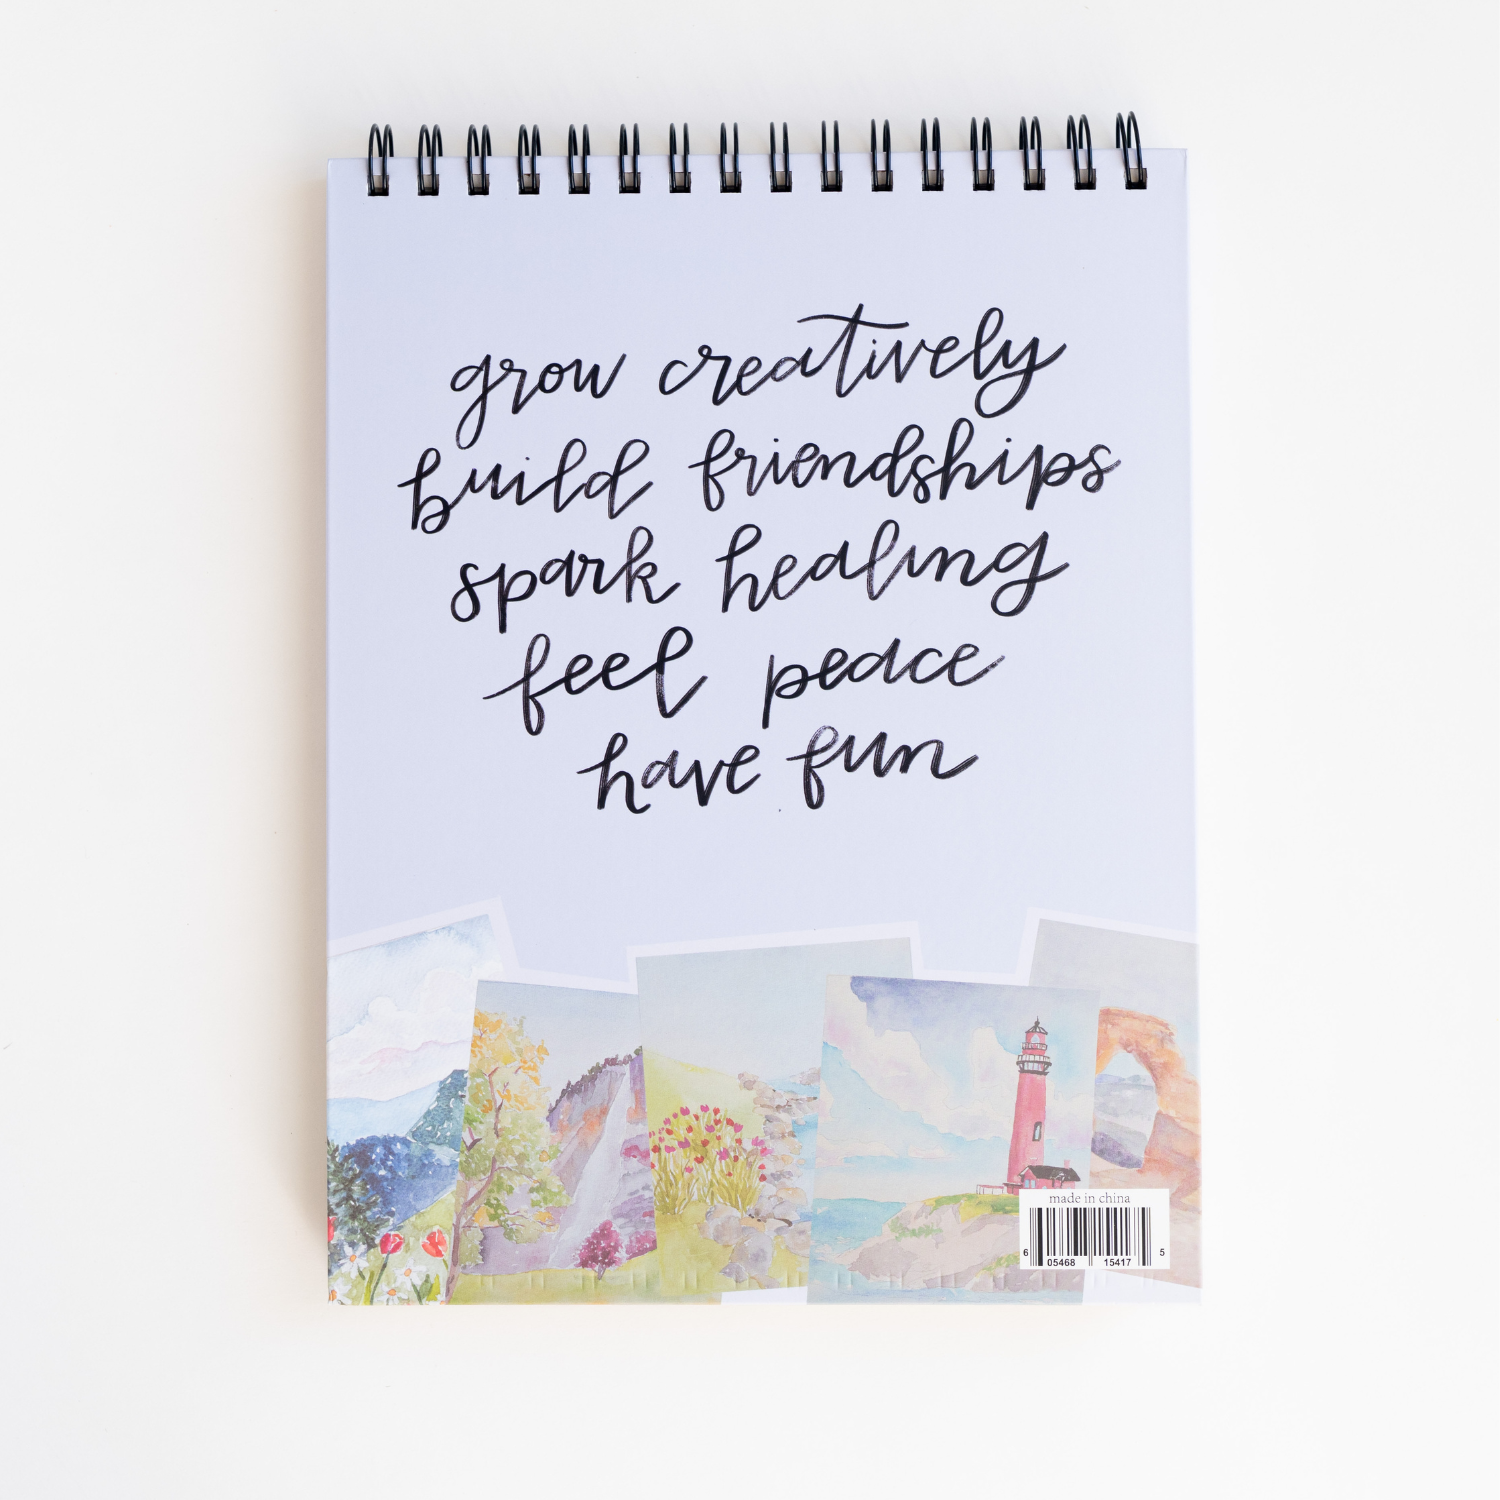 grow creatively
build friendships
spark healing
feel peace
have fun
made in china
6 05468 15417 5